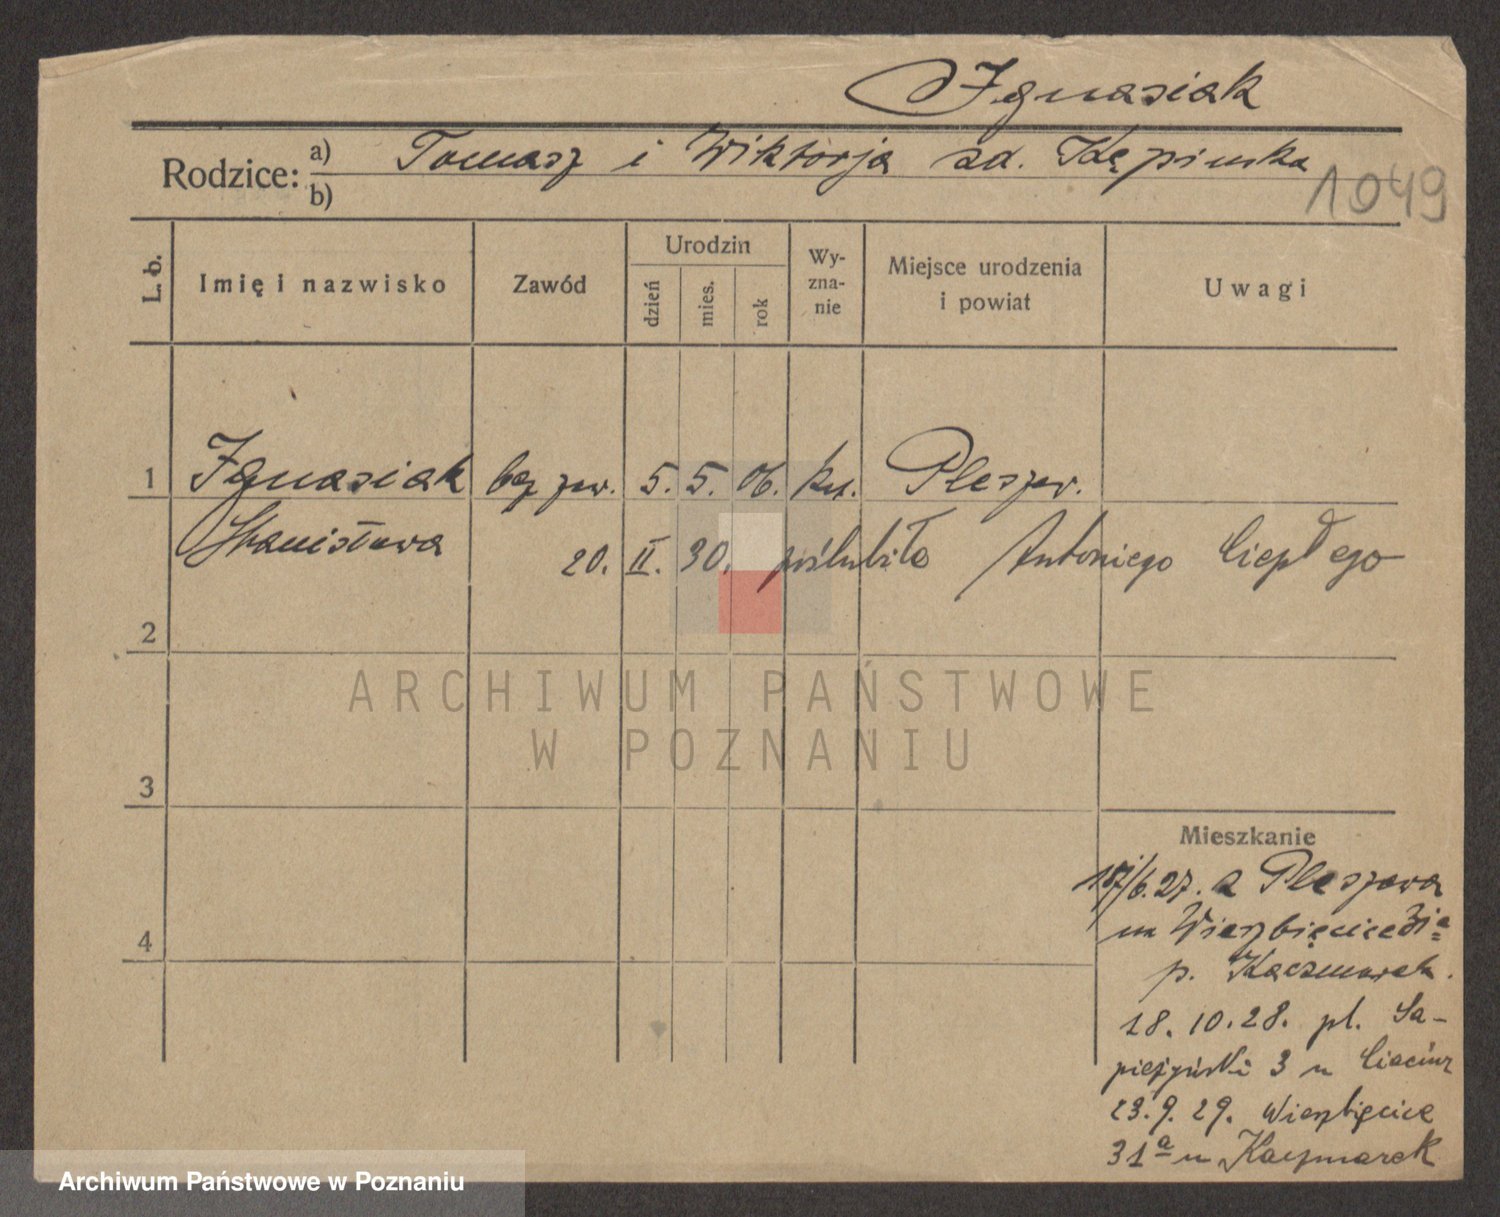 Ignasiak
Rodzice: a) Tomasz i Wiktorja zd. Kępinska
b)
1049
L. b. Imię i nazwisko Zawód Urodzin dzień mies. rok Wy- zna- nie Miejsce urodzenia i powiat Uwagi
1 Ignasiak bez zaw. 5. 5. 06. kat. Pleszew.
Stanisława
20. II. 30. poślubiła Antoniego Ciepłego
2
ARCHIWUM PAŃSTWOWE
W POZNANIU
3
Mieszkanie
/6.27. z Pleszewa
na Wierzbięcice
4
p. Kaczmarek.
18.10.28. pl. Sa-
pieżyński 3 u
23.9.29. Wierzbięcice
31a u Kaczmarek
Archiwum Państwowe w Poznaniu